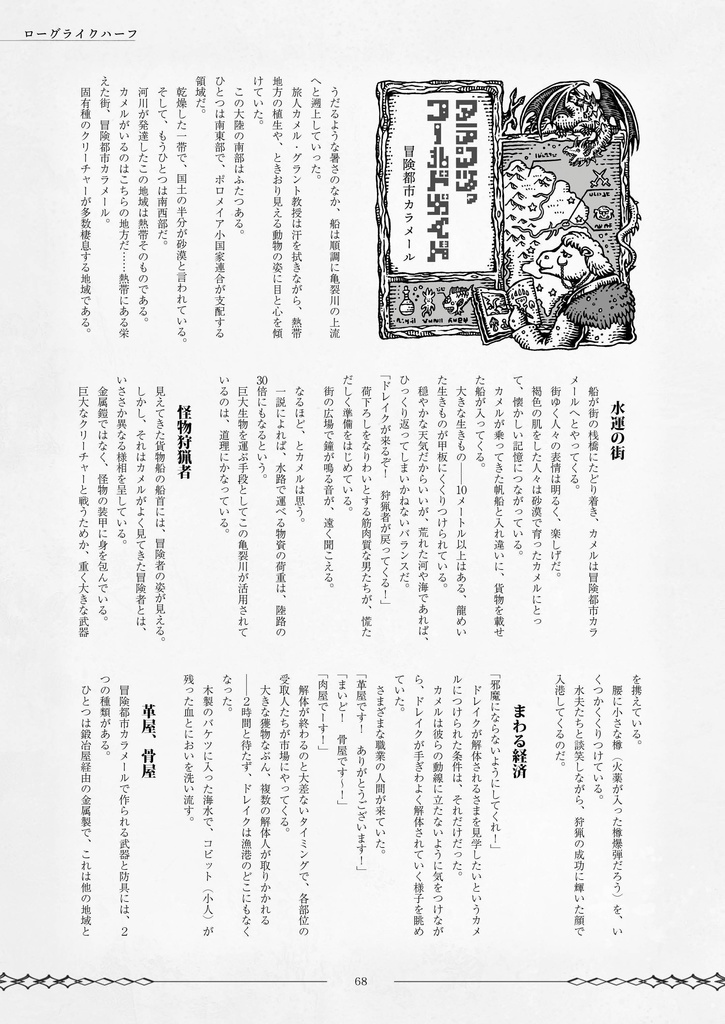 ローグライクハーフ
アランツァ
ワールドガイド
冒険都市カラメール
うだるような暑さのなか、船は順調に亀裂川の上流
へと遡上していった。
旅人カメル・グラント教授は汗を拭きながら、熱帯
地方の植生や、ときおり見える動物の姿に目と心を傾
けていた。
この大陸の南部はふたつある。
ひとつは南東部で、ポロメイア小国家連合が支配する
領域だ。
乾燥した一帯で、国土の半分が砂漠と言われている。
そして、もうひとつは南西部だ。
河川が発達したこの地域は熱帯そのものである。
カメルがいるのはこちらの地方だ……熱帯にある栄
えた街、冒険都市カラメール。
固有種のクリーチャーが多数棲息する地域である。
水運の街
船が街の桟橋にたどり着き、カメルは冒険都市カラ
メールへとやってくる。
街ゆく人々の表情は明るく、楽しげだ。
褐色の肌をした人々は砂漠で育ったカメルにとっ
て、懐かしい記憶につながっている。
カメルが乗ってきた帆船と入れ違いに、貨物を載せ
た船が入ってくる。
大きな生きもの――10メートル以上はある、龍めい
た生きものが甲板にくくりつけられている。
穏やかな天気だからいいが、荒れた河や海であれば、
ひっくり返ってしまいかねないバランスだ。
「ドレイクが来るぞ！　狩猟者が戻ってくる！」
荷下ろしをなりわいとする筋肉質な男たちが、慌た
だしく準備をはじめている。
街の広場で鐘が鳴る音が、遠く聞こえる。
なるほど、とカメルは思う。
一説によれば、水路で運べる物資の荷重は、陸路の
30倍にもなるという。
巨大生物を運ぶ手段としてこの亀裂川が活用されて
いるのは、道理にかなっている。
怪物狩猟者
見えてきた貨物船の船首には、冒険者の姿が見える。
しかし、それはカメルがよく見てきた冒険者とは、
いささか異なる様相を呈している。
金属鎧ではなく、怪物の装甲に身を包んでいる。
巨大なクリーチャーと戦うためか、重く大きな武器
を携えている。
腰に小さな樽（火薬が入った樽爆弾だろう）を、い
くつかくくりつけている。
水夫たちと談笑しながら、狩猟の成功に輝いた顔で
入港してくるのだ。
まわる経済
「邪魔にならないようにしてくれ！」
ドレイクが解体されるさまを見学したいというカメ
ルにつけられた条件は、それだけだった。
カメルは彼らの動線に立たないように気をつけなが
ら、ドレイクが手ぎわよく解体されていく様子を眺め
ていた。
さまざまな職業の人間が来ていた。
「革屋です！　ありがとうございます！」
「まいど！　骨屋です～！」
「肉屋でーす！」
解体が終わるのと大差ないタイミングで、各部位の
受取人たちが市場にやってくる。
大きな獲物なぶん、複数の解体人が取りかかれる
――２時間と待たず、ドレイクは漁港のどこにもなく
なった。
木製のバケツに入った海水で、コビット（小人）が
残った血とにおいを洗い流す。
革屋、骨屋
冒険都市カラメールで作られる武器と防具には、２
つの種類がある。
ひとつは鍛冶屋経由の金属製で、これは他の地域と
68